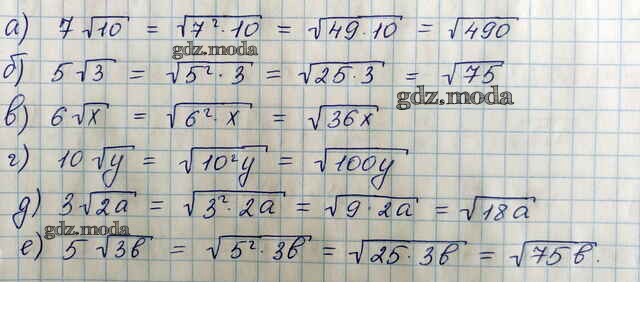 а) 7√10 = √7²·10 = √49·10 = √490
gdz.moda
б) 5√3 = √5²·3 = √25·3 = √75
gdz.moda
в) 6√x = √6²·x = √36x
г) 10√y = √10²y = √100y
д) 3√2a = √3²·2a = √9·2a = √18a
gdz.moda
е) 5√3в = √5²·3в = √25·3в = √75в.